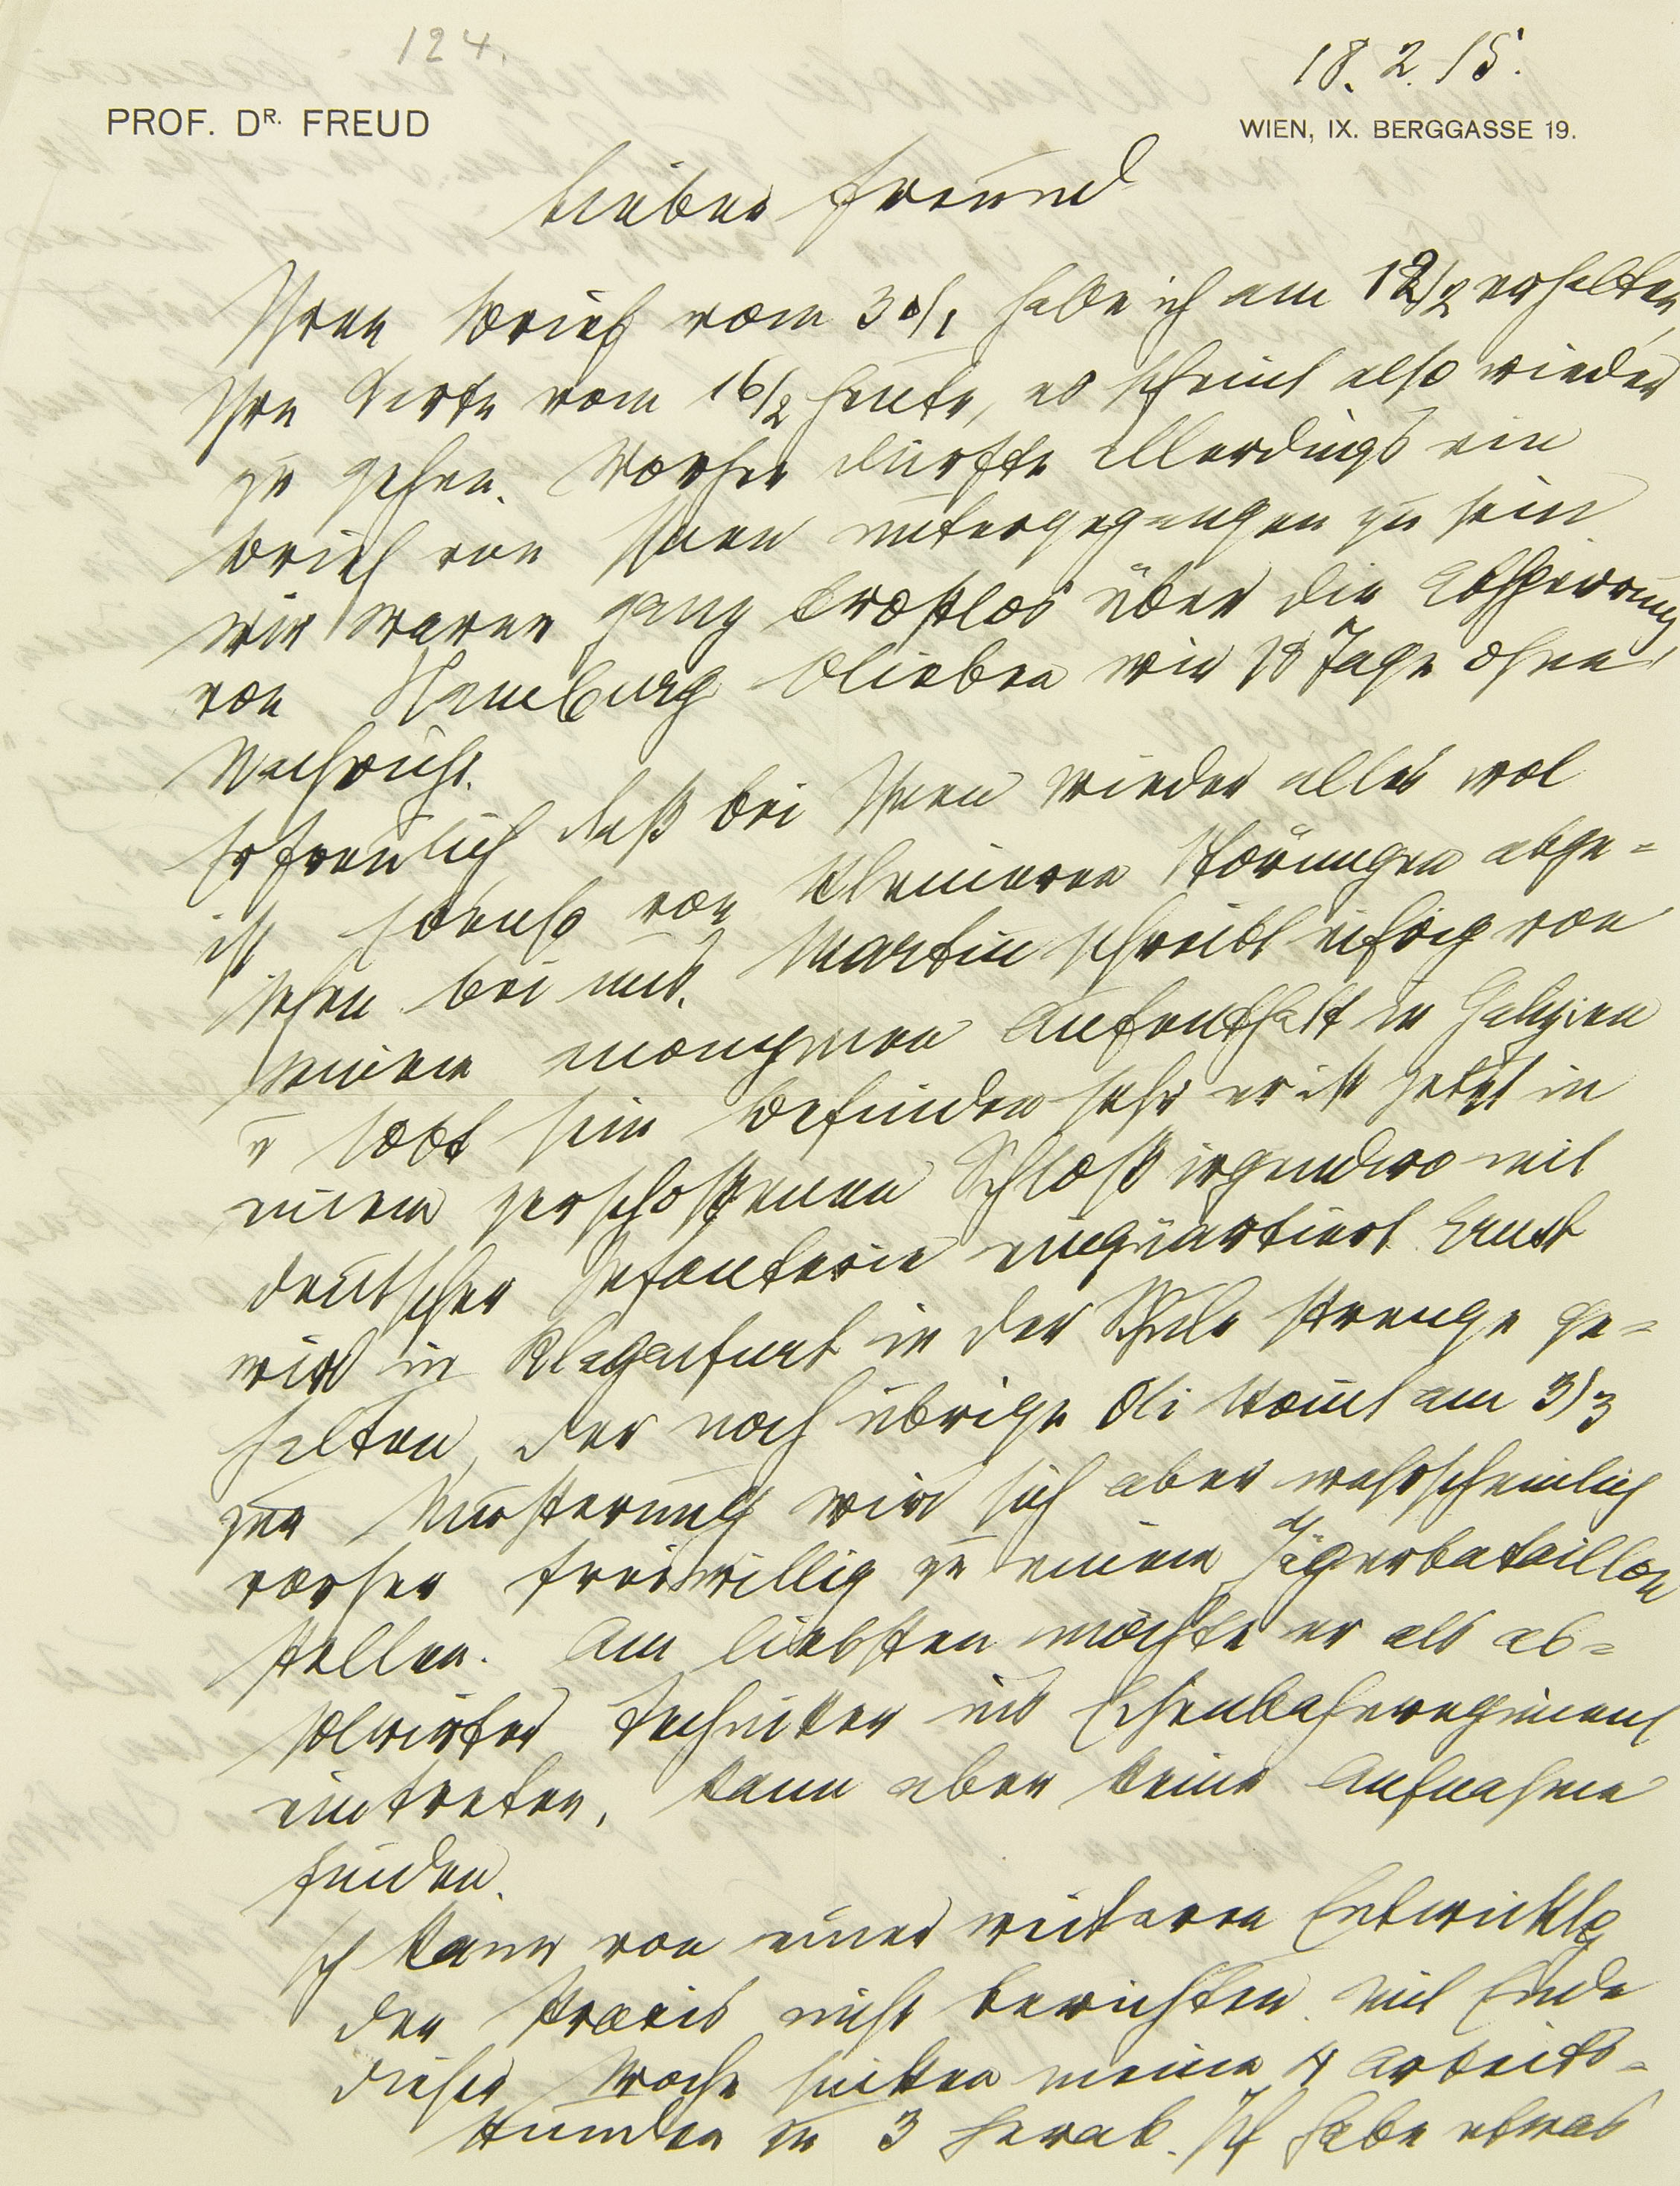 124.
18.2.15.
PROF. DR. FREUD
WIEN, IX. BERGGASSE 19.
Lieber Freund
Ihren Brief vom 30/1 habe ich am 12/2 erhalten,
Ihre Karte vom 16/2 heute, es scheint also wieder
zu gehen. Vorher dürfte allerdings ein
Brief von Ihnen untergegangen zu sein
Wir waren ganz trostlos über die Absperrung
von Hamburg blieben wir 18 Tage ohne
Nachricht.
Erfreulich daß bei Ihnen wieder alles wol
ist ebenso von kleineren Störungen abge=
sehen bei uns. Martin schreibt eifrig von
seinem Aufenthalt in Galizien
u lobt sein Befinden sehr er ist jetzt in
einem zerschossenen Schloß irgendwo mit
deutscher Infanterie einquartiert. Ernst
wird in Klagenfurt in der Schule strenge ge=
halten, der noch übrige Oli kom̅t am 3/3
zur Musterung wird sich aber wahrscheinlich
vorher freiwillig zu einem Jägerbataillon
stellen. Am liebsten möchte er als ab=
solvirter Techniker ins Eisenbahnregiment
eintreten, kann aber keine Aufnahme
finden.
Ich kann von einer weiteren Entwicklg
der Praxis nicht berichten. Mit Ende
dieser Woche sinken meine 4 Arbeits=
stunden zu 3 herab. Ich habe etwas